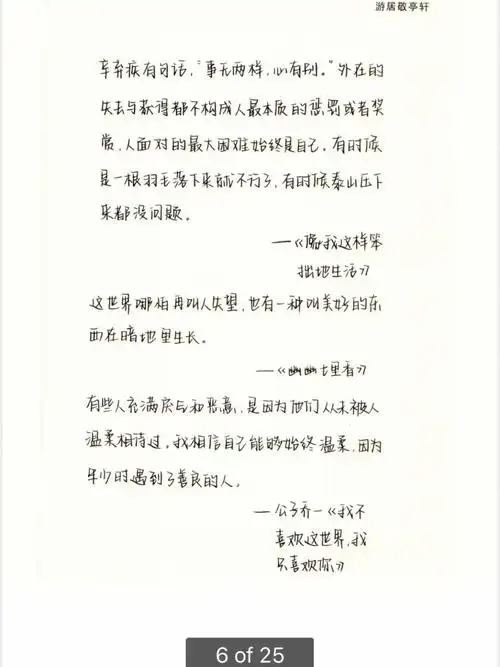 游居敬亭轩
辛弃疾有句话，“事无两样，心有别。”外在的
失去与获得都不构成人最本质的惩罚或者奖
赏，人面对的最大困难始终是自己。有时候
是一根羽毛落下来就不行了，有时候泰山压下
来都没问题。
—《像我这样笨
拙地生活》
这世界哪怕再叫人失望，也有一种叫美好的东
西在暗地里生长。
—《幽幽埋香》
有些人充满戾气和恶意，是因为他们从未被人
温柔相待过。我相信自己能够始终温柔，因为
年少时遇到了善良的人。
—公子乔一《我不
喜欢这世界，我
只喜欢你》
6 of 25